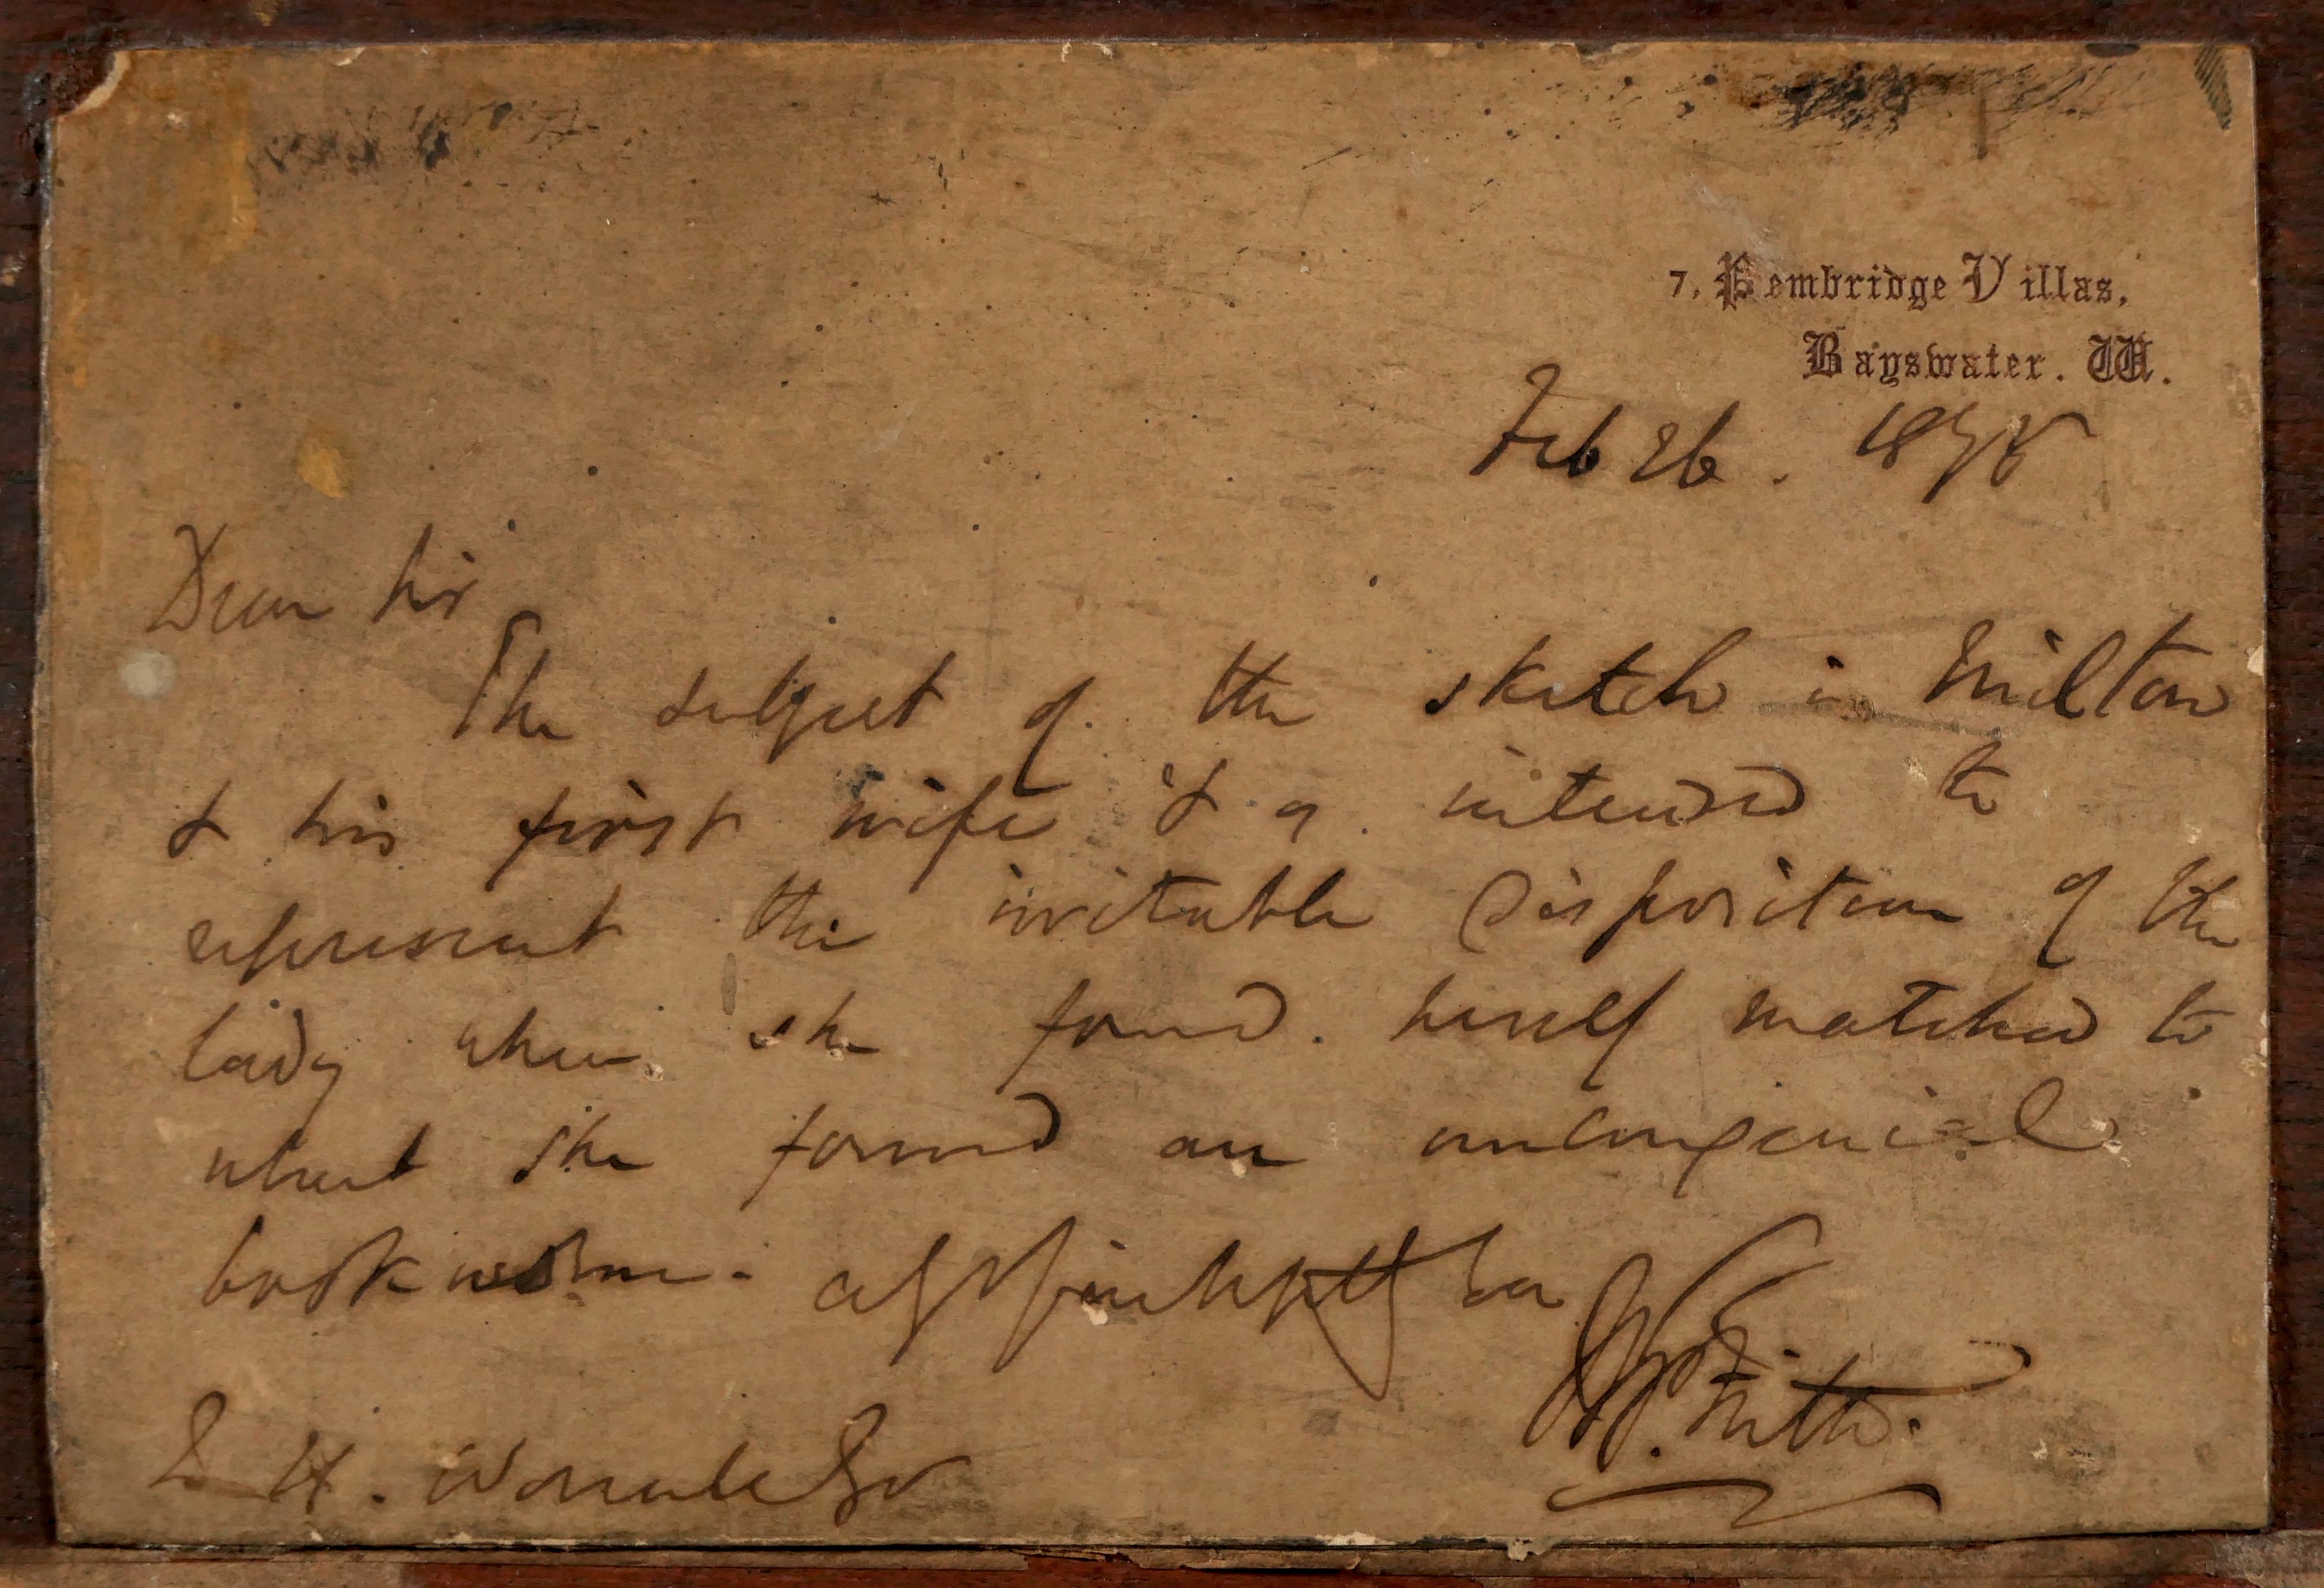 7, Pembridge Villas,
Bayswater. W.
Feb 26. 1878
Dear Sir
The subject of the sketch is Milton
& his first wife & is intended to
represent the irritable disposition of the
lady when she found herself matched to
what she found an uncongenial
book worm. faithfully
W. P. Frith.
H. Esqr